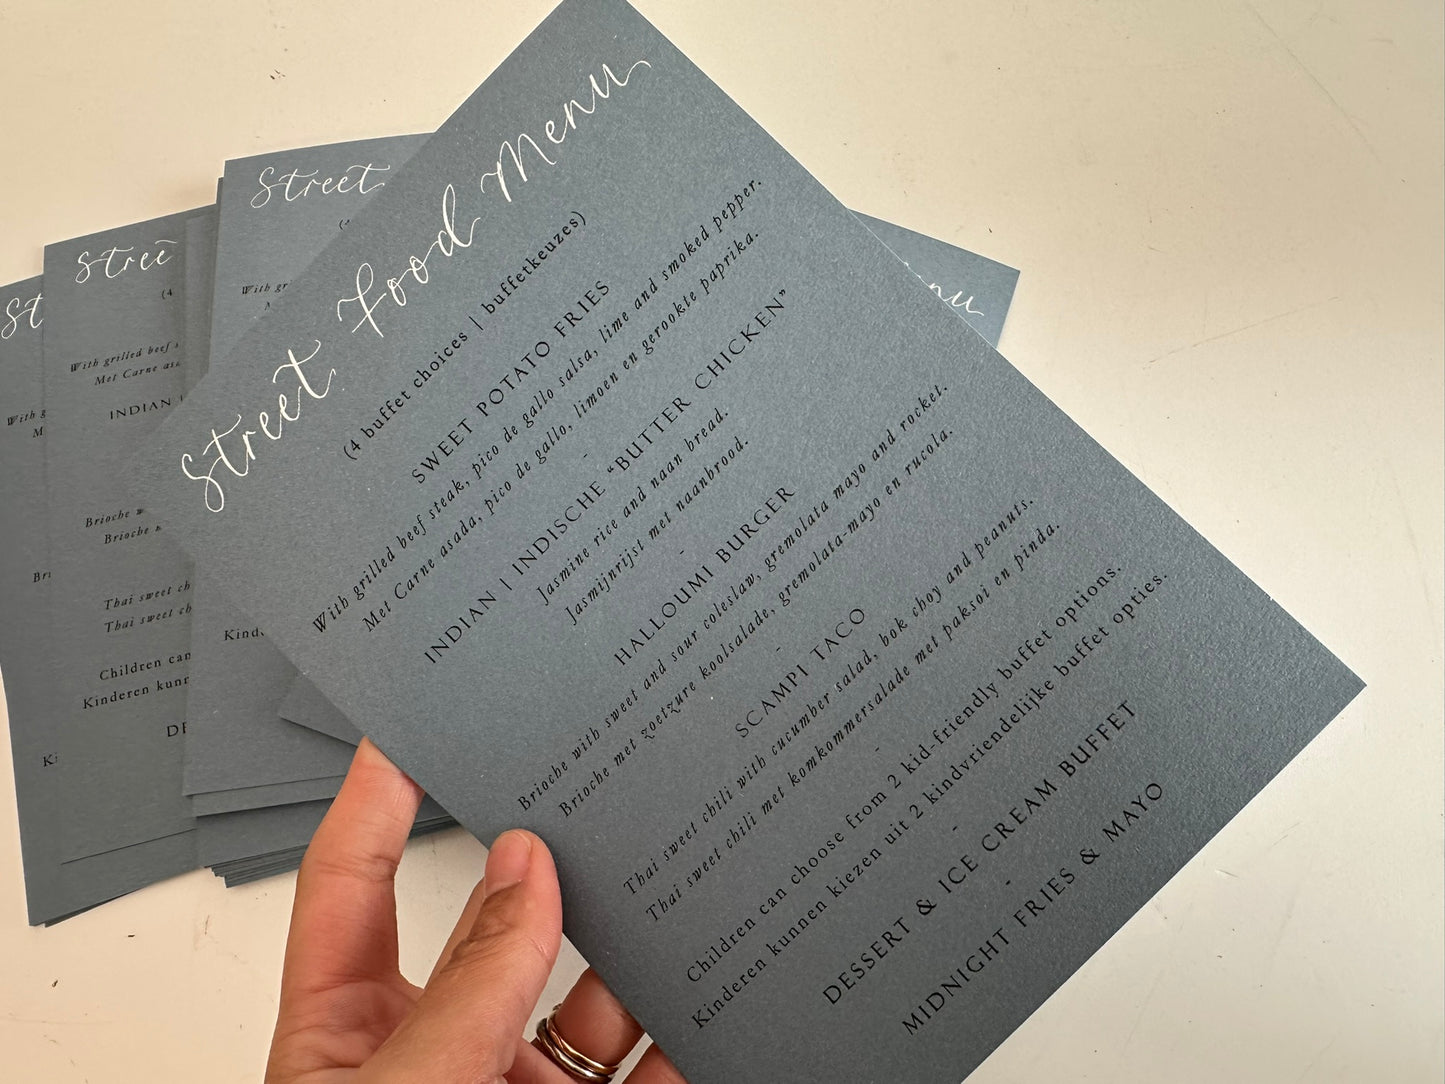 Street Food Menu
(4 buffet choices | buffetkeuzes)
SWEET POTATO FRIES
With grilled beef steak, pico de gallo salsa, lime and smoked pepper.
Met Carne asada, pico de gallo, limoen en gerookte paprika.
-
INDIAN | INDISCHE “BUTTER CHICKEN”
Jasmine rice and naan bread.
Jasmijnrijst met naanbrood.
-
HALLOUMI BURGER
Brioche with sweet and sour coleslaw, gremolata mayo and rocket.
Brioche met zoetzure koolsalade, gremolata-mayo en rucola.
-
SCAMPI TACO
Thai sweet chili with cucumber salad, bok choy and peanuts.
Thai sweet chili met komkommersalade met paksoi en pinda.
-
Children can choose from 2 kid-friendly buffet options.
Kinderen kunnen kiezen uit 2 kindvriendelijke buffet opties.
-
DESSERT & ICE CREAM BUFFET
-
MIDNIGHT FRIES & MAYO
Street
With gr
Kind
Stree
(4
With grilled beef s
Met Carne asa
INDIAN |
Brioche w
Brioche
Thai sweet ch
Thai sweet ch
Children can
Kinderen kunn
DE
St
With g
M
Bri
Ki
nu